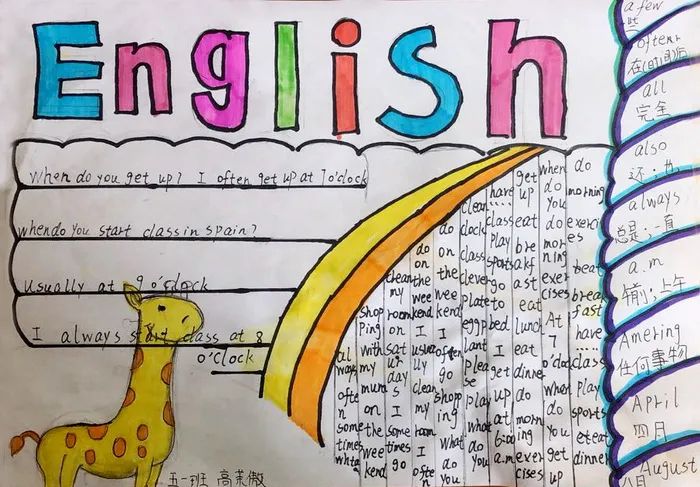 English
When do you get up? I often get up at 7 o'clock
when do you start class in spain?
usually at 9 o'clock
I always start class at 8
o'clock
always
often
sometimes
shopping
with
my
mum
on
the
weekend
clean
my
room
on
saturdays
I
sometimes
go
do
on
the
weekend
I
usually
clean
my
room
I
often
do
on
the
weekend
I
often
go
shopping
What
do
you
clean
clock
class
clever
plate
eggplant
please
play
what
do
you
have
....
class
play
sports
go
to
bed
I
get
up
at
6:00
a.m
get
up
eat
breakfast
eat
lunch
eat
dinner
do
morning
exercises
when
do
you
do
morning
exercises
At
7
o'clock
when
do
you
get
up
do
morning
exercises
eat
breakfast
have
....
class
play
sports
eteat
dinner
a few
一些
often
all
完全
also
还;也
always
总是;一直
a.m
上午
Amering
任何事物
April
四月
August
八月
五一班 高茉傲